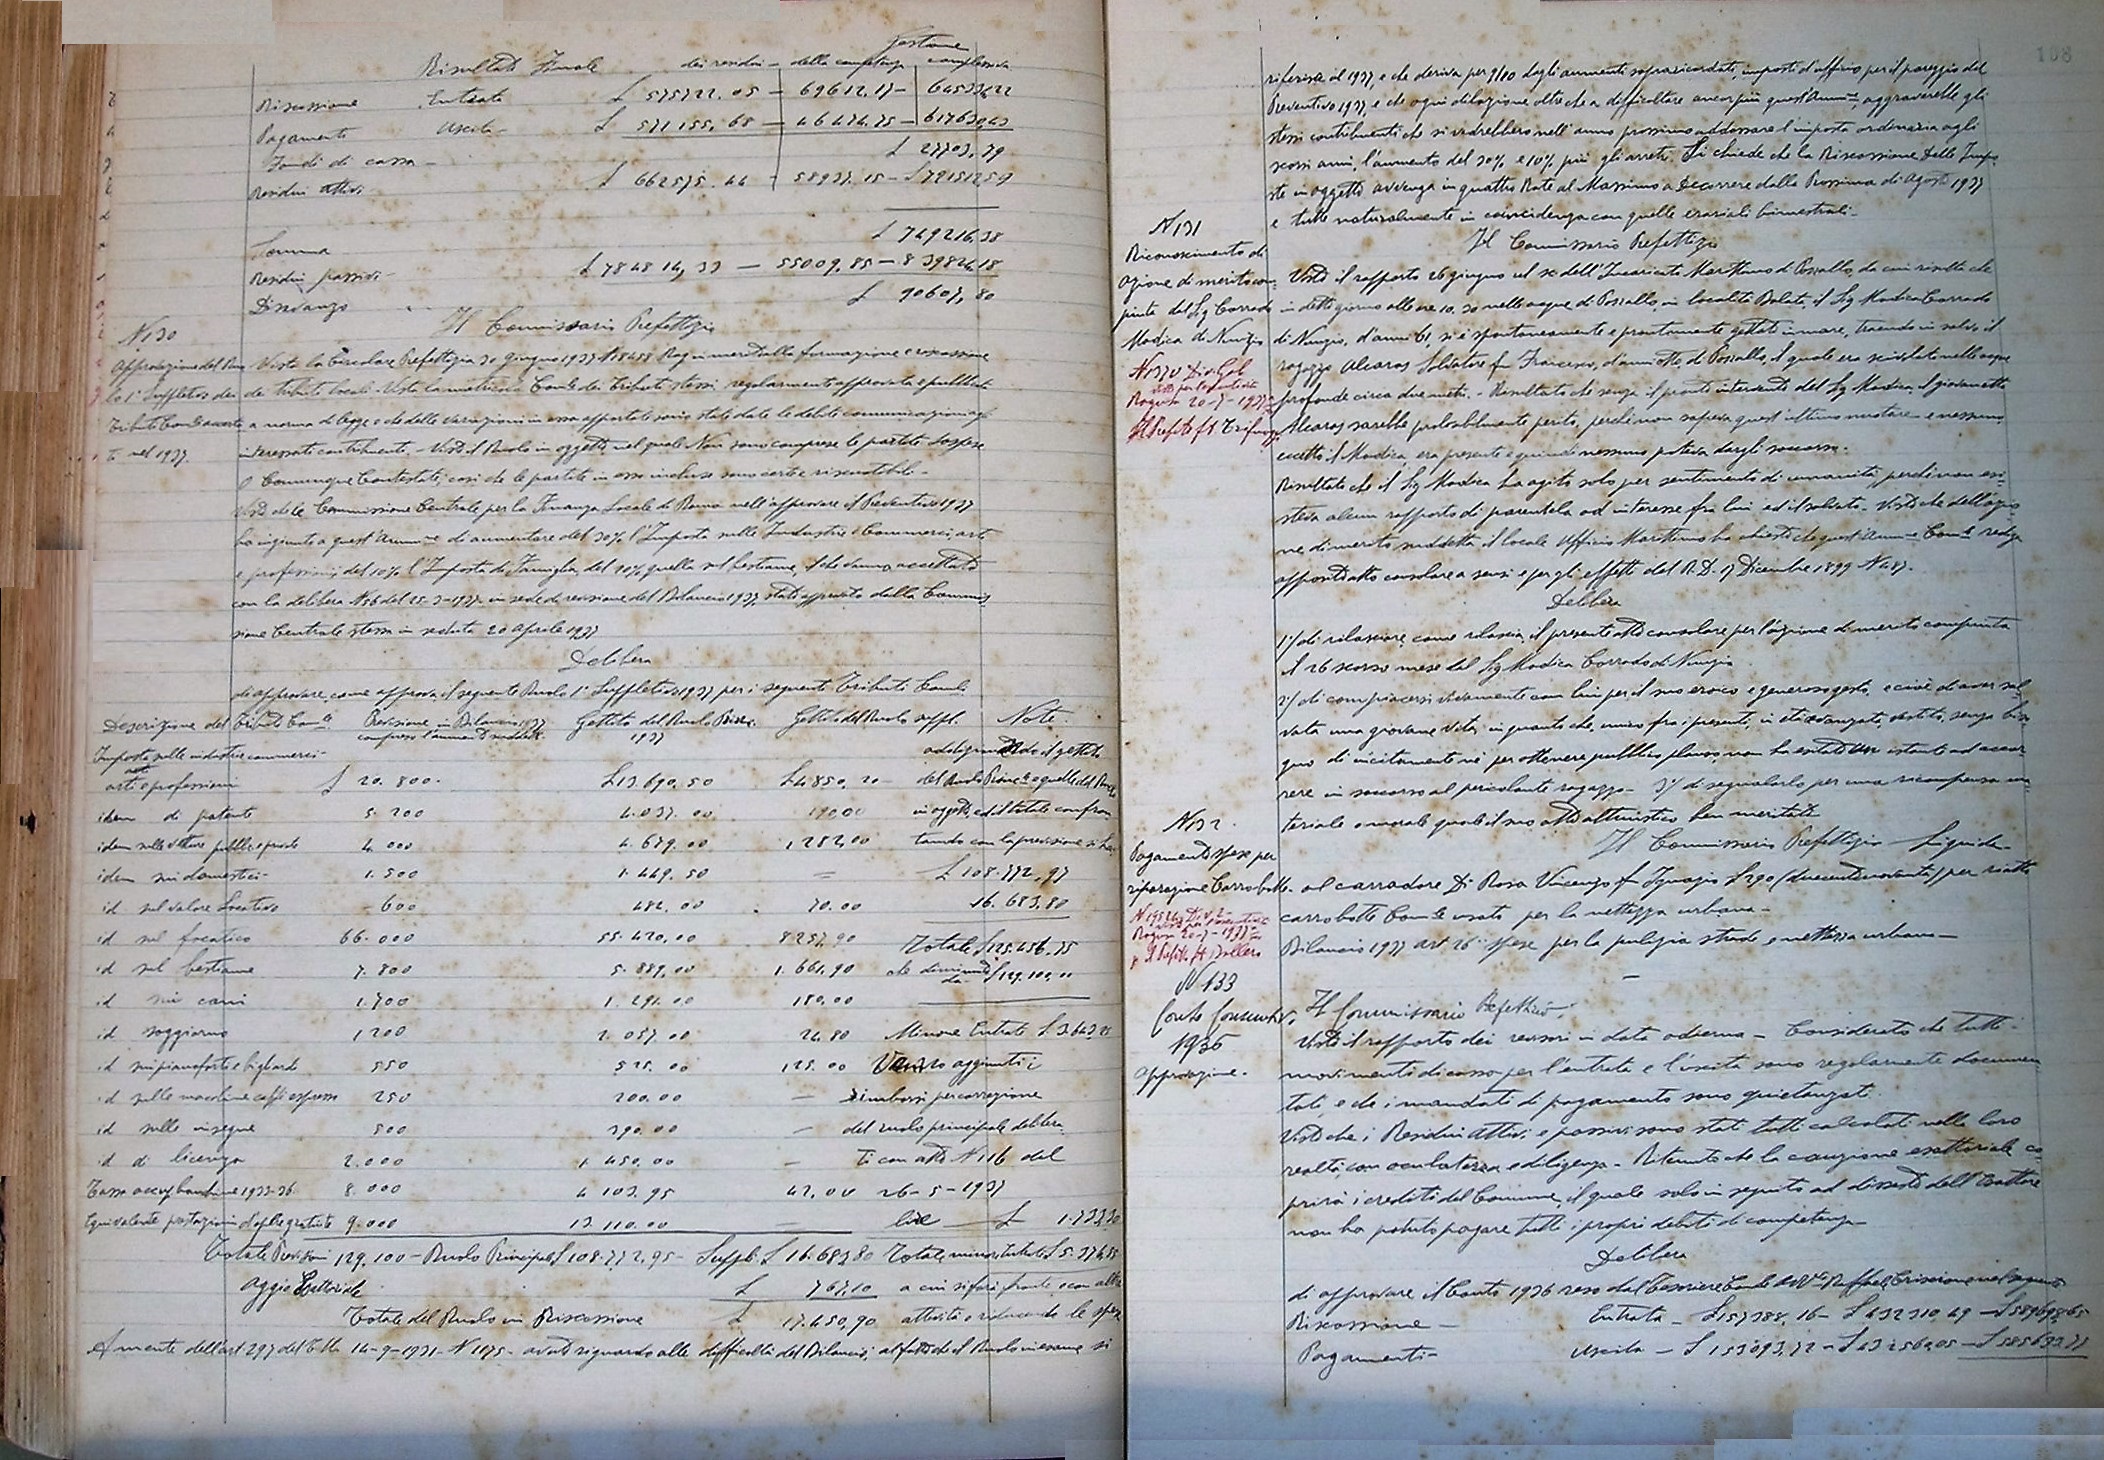 Gestione
Risultati Finale dei residui - della competenza complessiva
Riscossione Entrate £ 575722.05 - 69612.17 - 645334,22
Pagamenti Uscita £ 571155.68 - 46474.75 - 617630,43
Fondi di cassa - £ 27703,79
Residui attivi £ 662575.44 - 58937.15 - £ 721512,59
£ 749216,38
Somma
Residui passivi - £ 784814,33 - 55009,85 - 839824,18
Disavanzo £ 90607,80
N 130 Il Commissario Prefettizio
Approvazione del Ruo Vista la Circolare Prefettizia 30 giugno 1937 N 8488 Rag in merito alla formazione e riscossione
lo 1° Suppletivo dei dei tributi locali - Vista la matricola Com.le dei Tributi stessi regolarmente approvata e pubblicata
Tributi Com.li a norma di legge e che delle variazioni in essa apportate sono state date le debite comunicazioni agli
ti nel 1937. interessati contribuenti - Visto il Ruolo in oggetto nel quale Non sono comprese le partite sospese
o Comunque Contestate, così che le partite in esso incluse sono certe e riscuotibili -
Visto che la Commissione Centrale per la Finanza Locale di Roma nell'approvare il Preventivo 1937
ha ingiunto a quest'Amm.ne di aumentare del 30% l'Imposta sulle Industrie e Commerci, arti
e professioni, del 10% l'Imposta di Famiglia, del 10% quella sul bestiame, il che venne accettato
con la delibera N 56 del 25-3-1937 in sede di revisione del Bilancio 1937, stato approvato dalla Commis
sione Centrale stessa in seduta 20 aprile 1937
Delibera
di approvare, come approva, il seguente Ruolo 1° Suppletivo 1937 per i seguenti Tributi Com.li
Descrizione dei Tributi Com.li Previsione in Bilancio 1937 Gettito del Ruolo Princ. Gettito del Ruolo suppl. Note
compreso l'aumento suddetto 1937
Imposta sulle industrie commerci - addizionando il gettito
arti e professioni £ 20.800. £ 13.690,50 £ 4850,20 - del Ruolo Princ.le e quello del Ruolo
idem di patente 5.200 4.037.00 190.00 in oggetto, ed il totale confron
idem sulle vetture pubbl. e private 4.000 4.679.00 1282,00 tando con la previsione si ha
idem sui domestici - 1.500 1.449.50 = £ 108.772,95
id sul valore Locativo 600 482.00 70.00 16.683,80
id sul focatico 66.000 55.420,00 8257,90 Totale £ 125.456.75
id sul bestiame 7.800 5.889,00 1.661,90 £ 129.100,00
id sui cani 1.700 1.291.00 180,00
id soggiorno 1200 2.057.00 24.80 Minore Entrata £ 3643,25
id sui pianoforti e bigliardi 550 525.00 125.00 aggiunti i
id sulle macchine caffè espresso 250 200.00 - rimborsi per correzione
id sulle insegne 500 390.00 - del ruolo principale delibera
id di licenza 2.000 1.450.00 - ti con atto N 116 del
Tassa occup. 1933-36 8.000 4.103.95 42,00 26-5-1937
Equivalente prestazioni d'opere gratuite 9.000 13.110.00 - £ 1.733,30
Totale Previsioni 129.100 - Ruolo Principale £ 108.772,95 - Suppl. £ 16.683,80 Totale minore Entrata £ 5.376,55
Aggio Esattoriale £ 767,10 a cui si farà fronte, con altre
Totale del Ruolo in Riscossione £ 17.450,90 attività o riducendo le spese
A mente dell'art 297 del T.U. 14-9-1931 - N 1175 - avuto riguardo alle difficoltà del Bilancio, al fatto che il Ruolo in esame si
108
riferisce al 1937, e che deriva per 9/10 dagli aumenti sopra ricordati, imposti d'ufficio per il pareggio del
Preventivo 1937, e che ogni dilazione oltre che a difficoltare ancor più quest'Amm.ne, aggraverebbe gli
stessi contribuenti che si vedrebbero nell'anno prossimo addossare l'imposta ordinaria agli
scorsi anni, l'aumento del 30% e 10% più gli arretr. Si chiede che la Riscossione delle Impo
ste in oggetto avvenga in quattro Rate al Massimo a Decorrere dalla Prossima di Agosto 1937
e tutte naturalmente in coincidenza con quelle erariali bimestrali -
N 131 Il Commissario Prefettizio
Riconoscimento di
azione di merito com- Visto il rapporto 26 giugno u.s. dell'Incaricato Marittimo di Pozzallo, da cui risulta che
piuta dal Sig Corrado in detto giorno alle ore 10.30 nelle acque di Pozzallo, in località Balata, il Sig Modica Corrado
Modica di Nunzio di Nunzio, d'anni 61, si è spontaneamente e prontamente gettato in mare, traendo in salvo il
N 1370 Div. Gab ragazzo Alcaras Salvatore fu Francesco, d'anni otto, di Pozzallo, il quale era scivolato nelle acque
Ragusa 20-7-1937 profonde circa due metri. - Risultato che senza il pronto intervento del Sig Modica, il giovanetto
Il Prefetto ft Trifuoggi Alcaras sarebbe probabilmente perito, perchè non sapeva quest'ultimo nuotare e nessuno,
eccetto il Modica, era presente e quindi nessuno poteva dargli soccorso.
Risultato che il Sig Modica ha agito solo per sentimento di umanità, perchè non esi-
steva alcun rapporto di parentela od interesse fra lui ed il salvato. Visto che dell'azio
ne di merito suddetta il locale Ufficio Marittimo ha chiesto che quest'Amm.ne Com.le rediga
apposito atto consolare a sensi e per gli effetti del R.D. 17 Dicembre 1899 N 487.
Delibera
1°) di rilasciare, come rilascia, il presente atto consolare per l'azione di merito compiuta
il 26 scorso mese dal Sig Modica Corrado di Nunzio
2°) di compiacersi vivamente con lui per il suo eroico e generoso gesto, e cioè di aver sal
vata una giovane vita, in quanto che, unico fra i presenti, in età avanzata, vestito, senza biso
gno di incitamento nè per ottenere pubblico plauso, non ha esitato un istante ad accor
rere in soccorso al pericolante ragazzo - 3°) di segnalarlo per una ricompensa ma
teriale o morale quale il suo atto altruistico ben meritata
N 132. Il Commissario Prefettizio Liquida
Pagamento spese per
riparazione Carrobotte al carradore Di Rosa Vincenzo fu Ignazio £ 290 (duecentonovanta) per riatto
carrobotte Com.le usato per la nettezza urbana -
Ragusa 20-7-1937
Bilancio 1937 art 26 spese per la pulizia strade e nettezza urbana -
N 133
Conto Consuntivo Il Commissario Prefettizio.
1936 Visto il rapporto dei revisori in data odierna - Considerato che tutti i
approvazione. movimenti di cassa per l'entrata e l'uscita sono regolarmente documen
tati, e che i mandati di pagamento sono quietanzati.
Visto che i Residui Attivi e passivi sono stati tutti calcolati nella loro
realtà, con oculatezza e diligenza - Ritenuto che la cauzione esattoriale co
prirà i crediti del Comune, il quale solo in seguito al dissesto dell'Esattore
non ha potuto pagare tutti i propri debiti di competenza -
Delibera
di approvare il Conto 1936 reso dal Tesoriere Com.le Raffaele Criscione nel seguente
Riscossione - Entrata - £ 157388,16 - £ 432310,49 - £ 589698,65
Pagamenti - Uscita - £ 153093,72 - £ 432560,05 - £ 585633,77